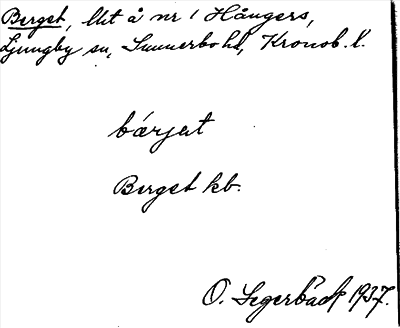 Berget, lht å nr 1 Hångers,
Ljungby sn, Sunnerbo hd, Kronob. l.
bærjet
Berget kb.
O. Segerbäck 1937.